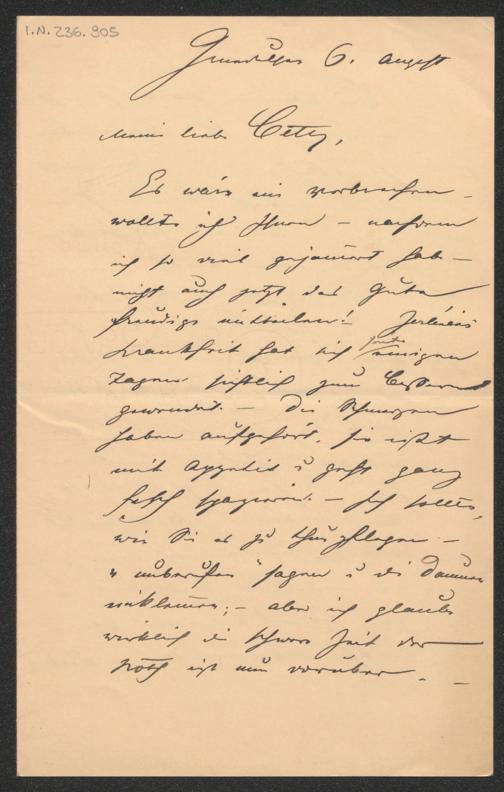 I.N. 236.905
6. August
Meine liebe Cety,
Es wäre ein Verbrechen
wollte ich Ihnen – nachdem
ich so viel gejammert habe –
nicht auch jetzt das Gute
freudigst mitteilen!
Krankheit hat sich seit einigen
Tagen sichtlich zum Besseren
gewendet. – Die Schmerzen
haben aufgehört, sie ißt
mit Appetit u geht ganz
fesch spazieren. – Ich sollte,
wie Sie es zu thun pflegen –
"unberufen" sagen u die Daumen
einklemmen; – aber ich glaube
wirklich die schwere Zeit der
Noth ist nun vorüber. –